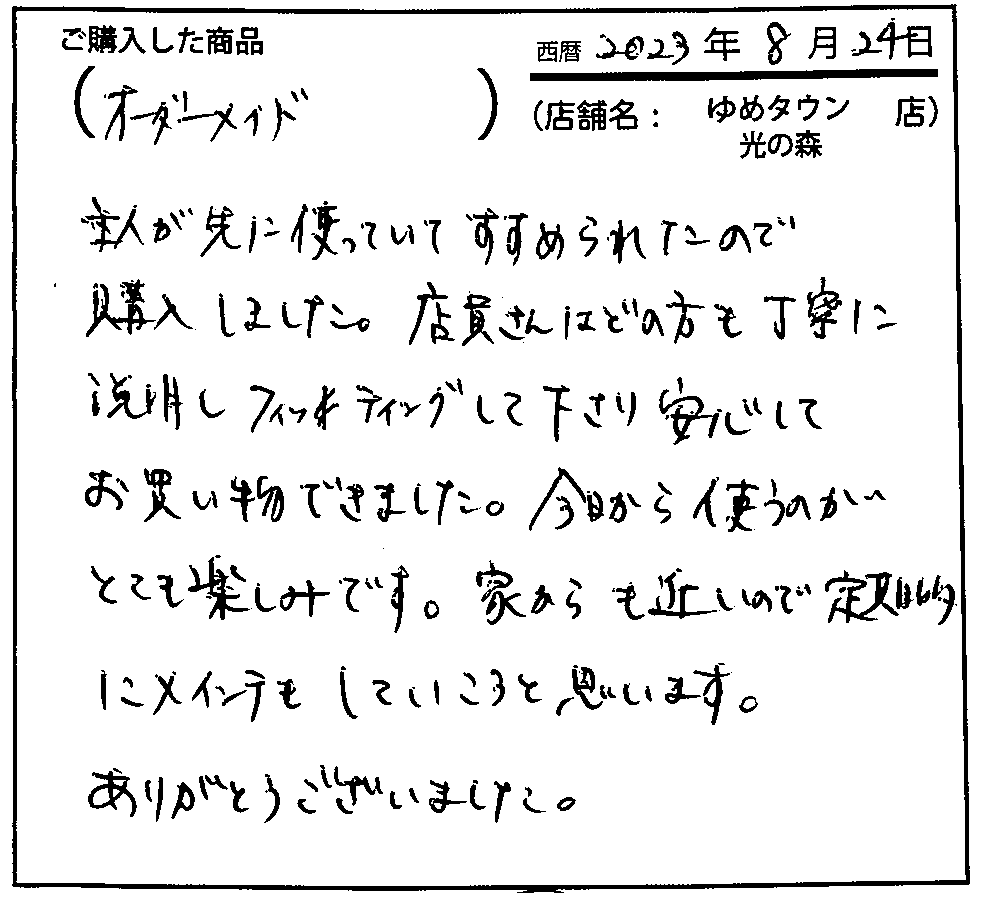 ご購入した商品
(オーダーメイド)
西暦 2023年 8月 24日
(店舗名: ゆめタウン 光の森 店)
主人が先に使っていてすすめられたので
購入しました。店員さんはどの方も丁寧に
説明しフィッティングして下さり安心して
お買い物できました。今日から使うのが
とても楽しみです。家からも近いので定期的
にメインテもしていこうと思います。
ありがとうございました。